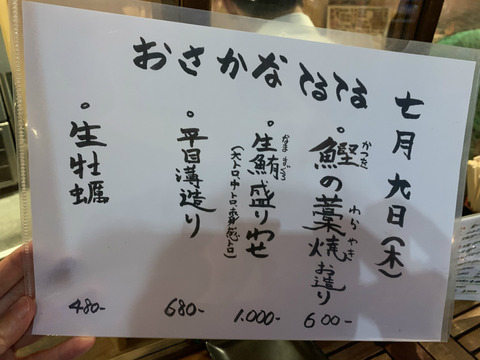 おさかな てるてる
七月九日(木)
・鰹の藁焼お造り 600-
かつを
わらやき
・生鮪盛りわせ 1.000-
なままぐろ
(大トロ中トロ赤身
トロ)
・平目薄造り 680-
・生牡蠣 480-